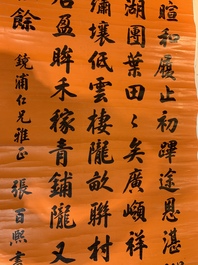 暄和履止初蹕途恩湛
湖團葉田〻矣廣巔祥
繡壤低雲棲隴畝聯村
居盈眸禾稼青鋪隴又
餘
鏡浦仁兄雅正
張百熙書